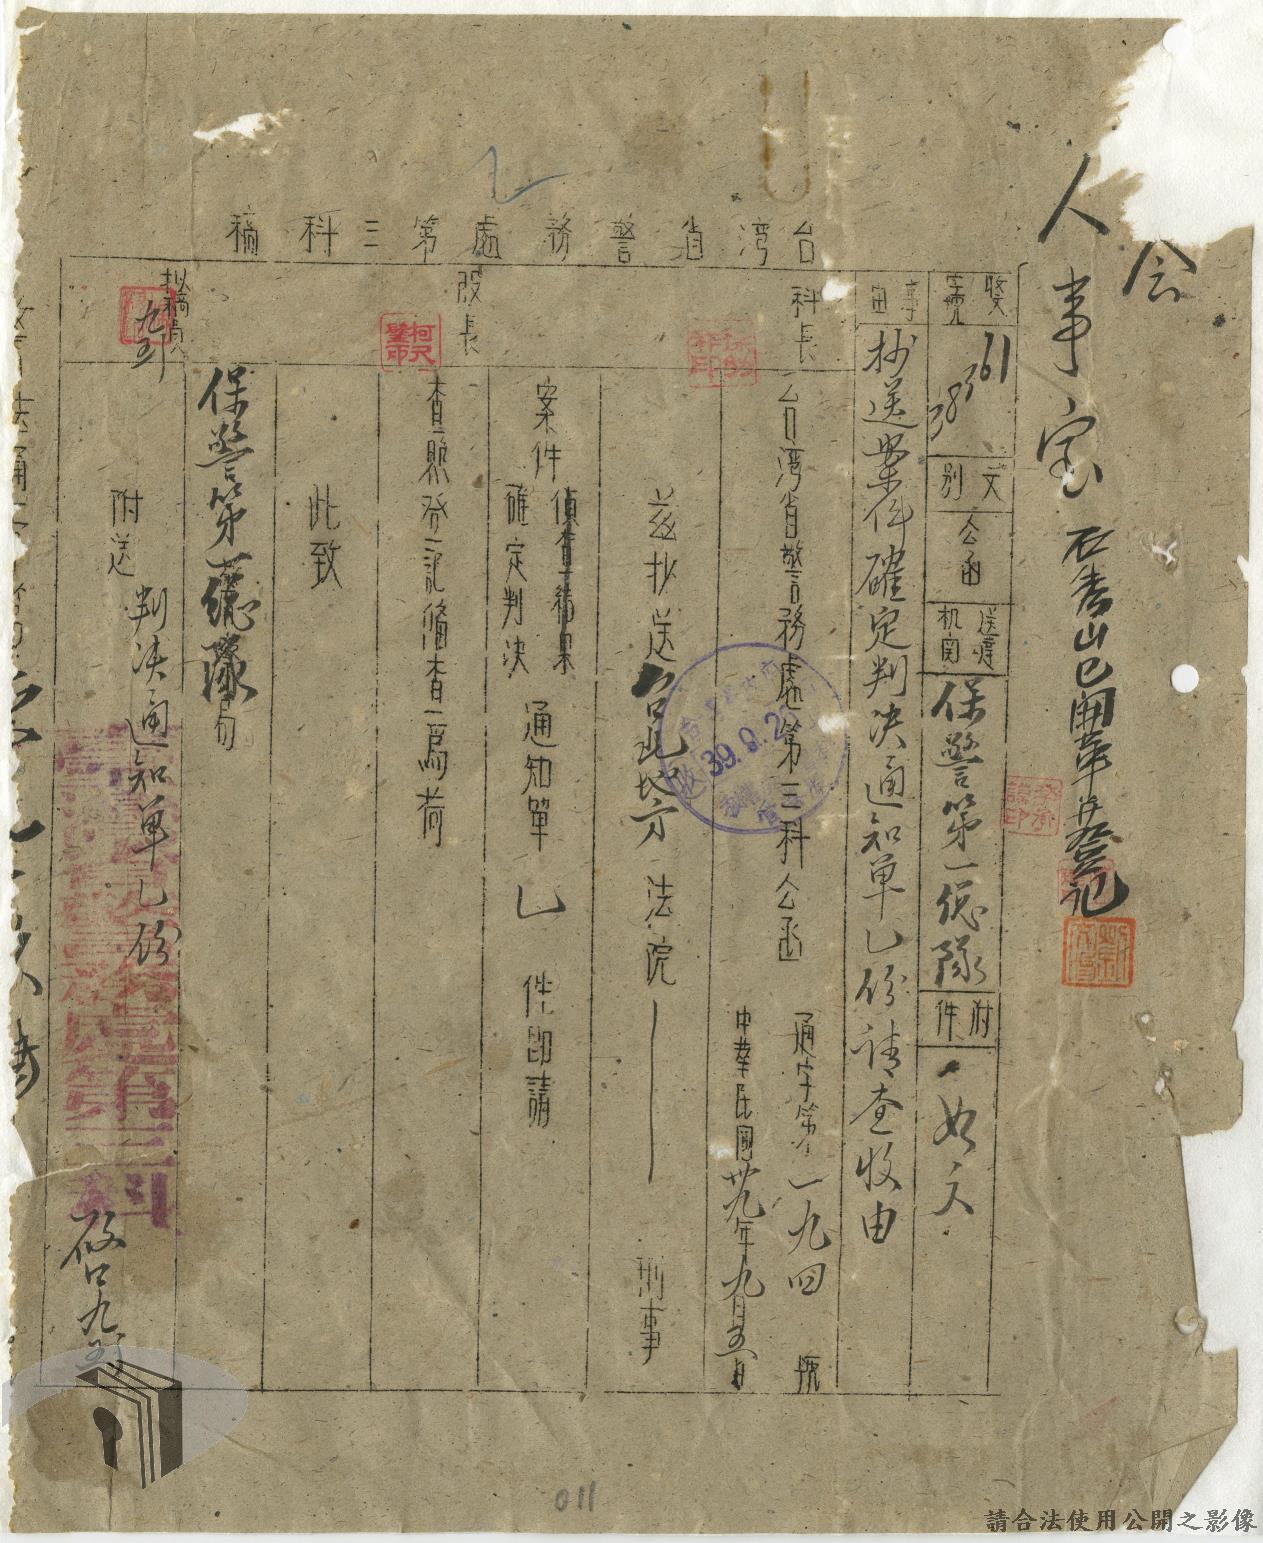 会
人事室
石秀山已開革并登記
台湾省警務處第三科稿
收文
字號
61
文別
公函
送達机関
保警第一總隊
附件
如文
事由
抄送案件確定判决通知单乙份请查收由
科長
股長
拟稿員
九、五
台湾省警務處第三科公函
通字第一九四號
中華民國卅九年九月五日
39.9.2
茲抄送台北地方法院
刑事
案件
偵查結果
確定判决
通知單乙件即請
查照登記備查為荷
此致
保警第一總隊
附送
判决通知单乙份
警務處第三科
011
請合法使用公開之影像